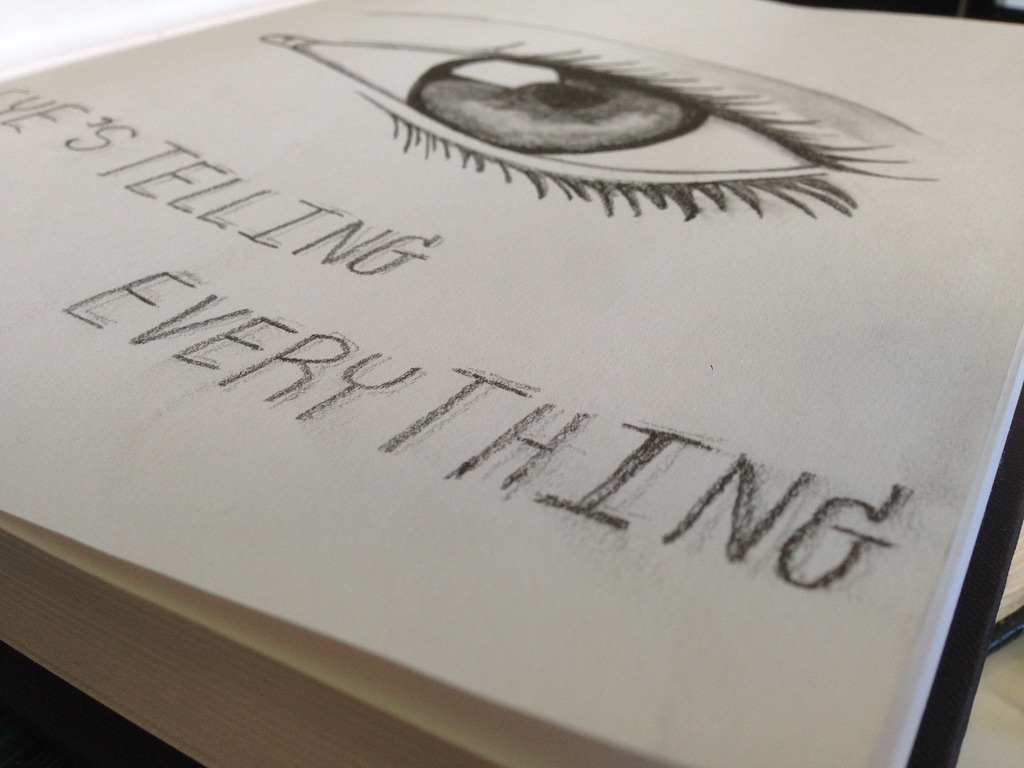 EYE'S TELLING
EVERYTHING